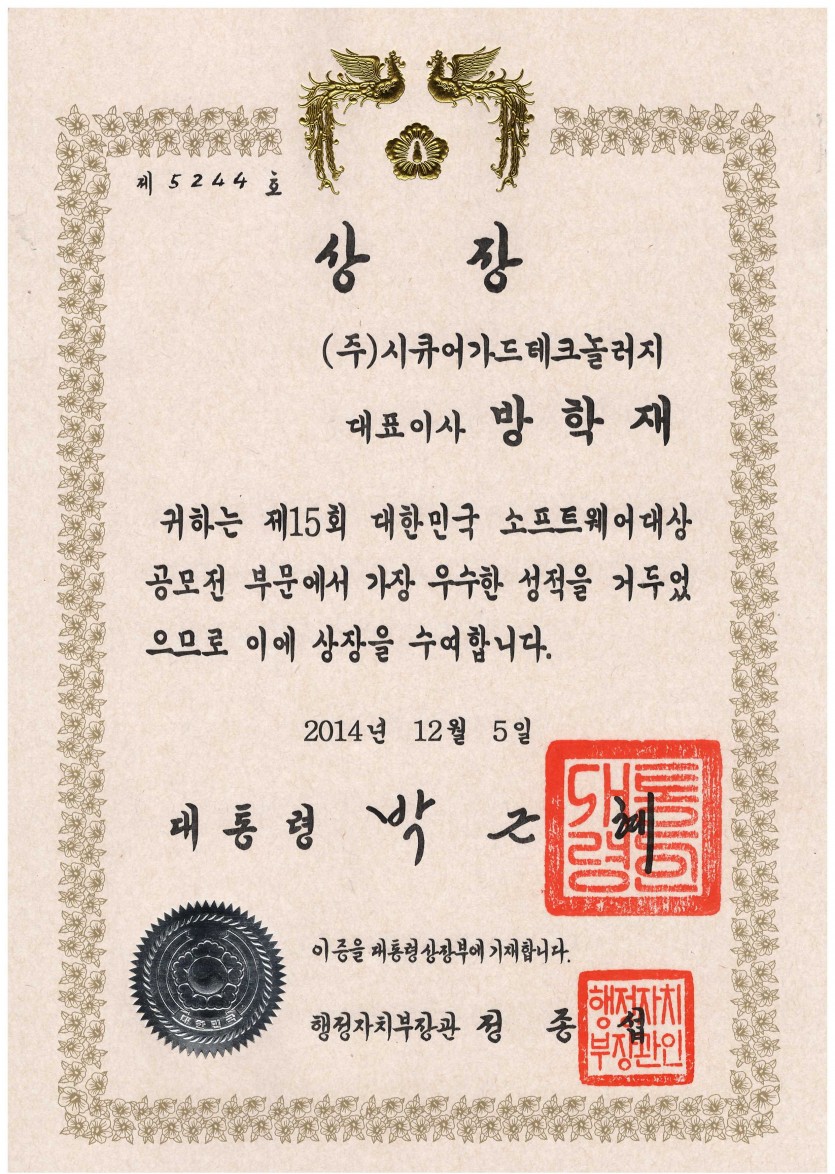 제 5244 호
상 장
(주)시큐어가드테크놀러지
대표이사 방 학 재
귀하는 제15회 대한민국 소프트웨어대상
공모전 부문에서 가장 우수한 성적을 거두었
으므로 이에 상장을 수여합니다.
2014년 12월 5일
대통령 박 근 혜
대통령의인
이 증을 대통령상장부에 기재합니다.
행정자치부장관 정 종 섭
행정자치
부장관인
대한민국